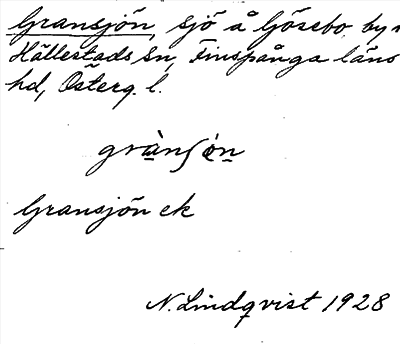 Gransjön, sjö å Gösebo by
Hällestads sn, Finspånga läns
hd, Österg. l.
grànʃòn
Gransjön ek
N. Lindqvist 1928